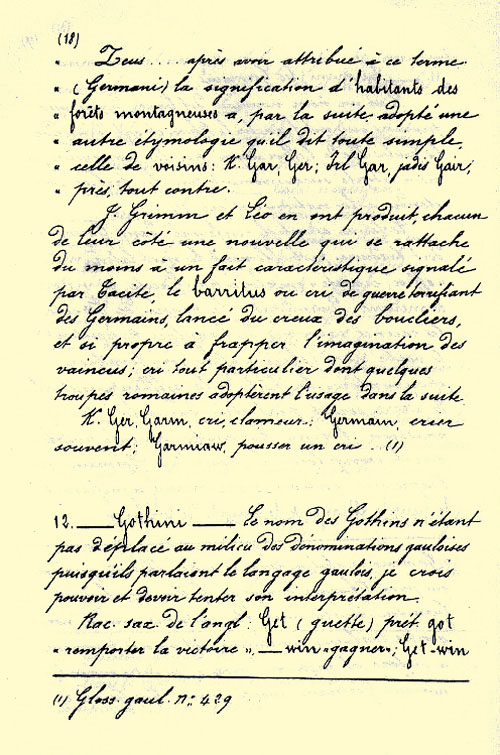 (18)
" Zeus .... après avoir attribué à ce terme
" (Germani) la signification d'habitants des
" forêts montagneuses a, par la suite, adopté une
" autre étymologie qu'il dit toute simple,
" celle de voisins: K. Gar, Ger; Irl Gar, jadis Gair;
" près, tout contre.
J. Grimm et Léo en ont produit, chacun
de leur côté une nouvelle qui se rattache
du moins à un fait caractéristique signalé
par Tacite, le barritus ou cri de guerre terrifiant
des Germains, lancé du creux des boucliers,
et si propre à frapper l'imagination des
vaincus; cri tout particulier dont quelques
troupes romaines adoptèrent l'usage dans la suite
K. Ger, Garm, cri, clameur; Germain, crier
souvent; Garmiaw, pousser un cri .. (1)
12. — Gothini — Le nom des Gothins n'étant
pas déplacé au milieu des dénominations gauloises
puisqu'ils parlaient le langage gaulois, je crois
pouvoir et devoir tenter son interprétation.
Rac. sax. de l'angl: Get (guette) prét. got
" remporter la victoire ", — win "gagner"; Get-win
(1) Gloss. gaul. N° 429